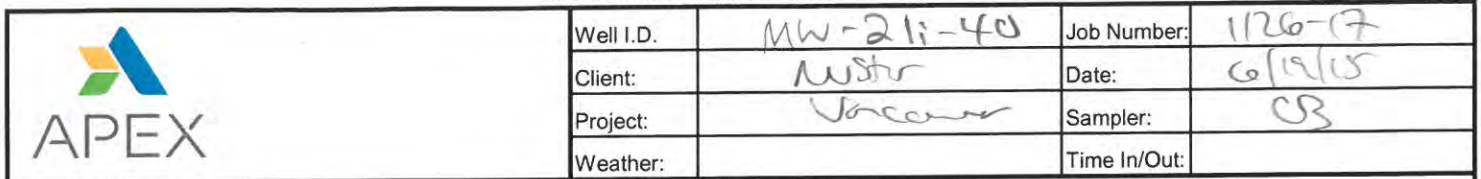 Well I.D. MW-21i-40 Job Number: 1126-17
Client: NuStar Date: 6/19/15
APEX Project: Vancouver Sampler: CB
Weather: Time In/Out: